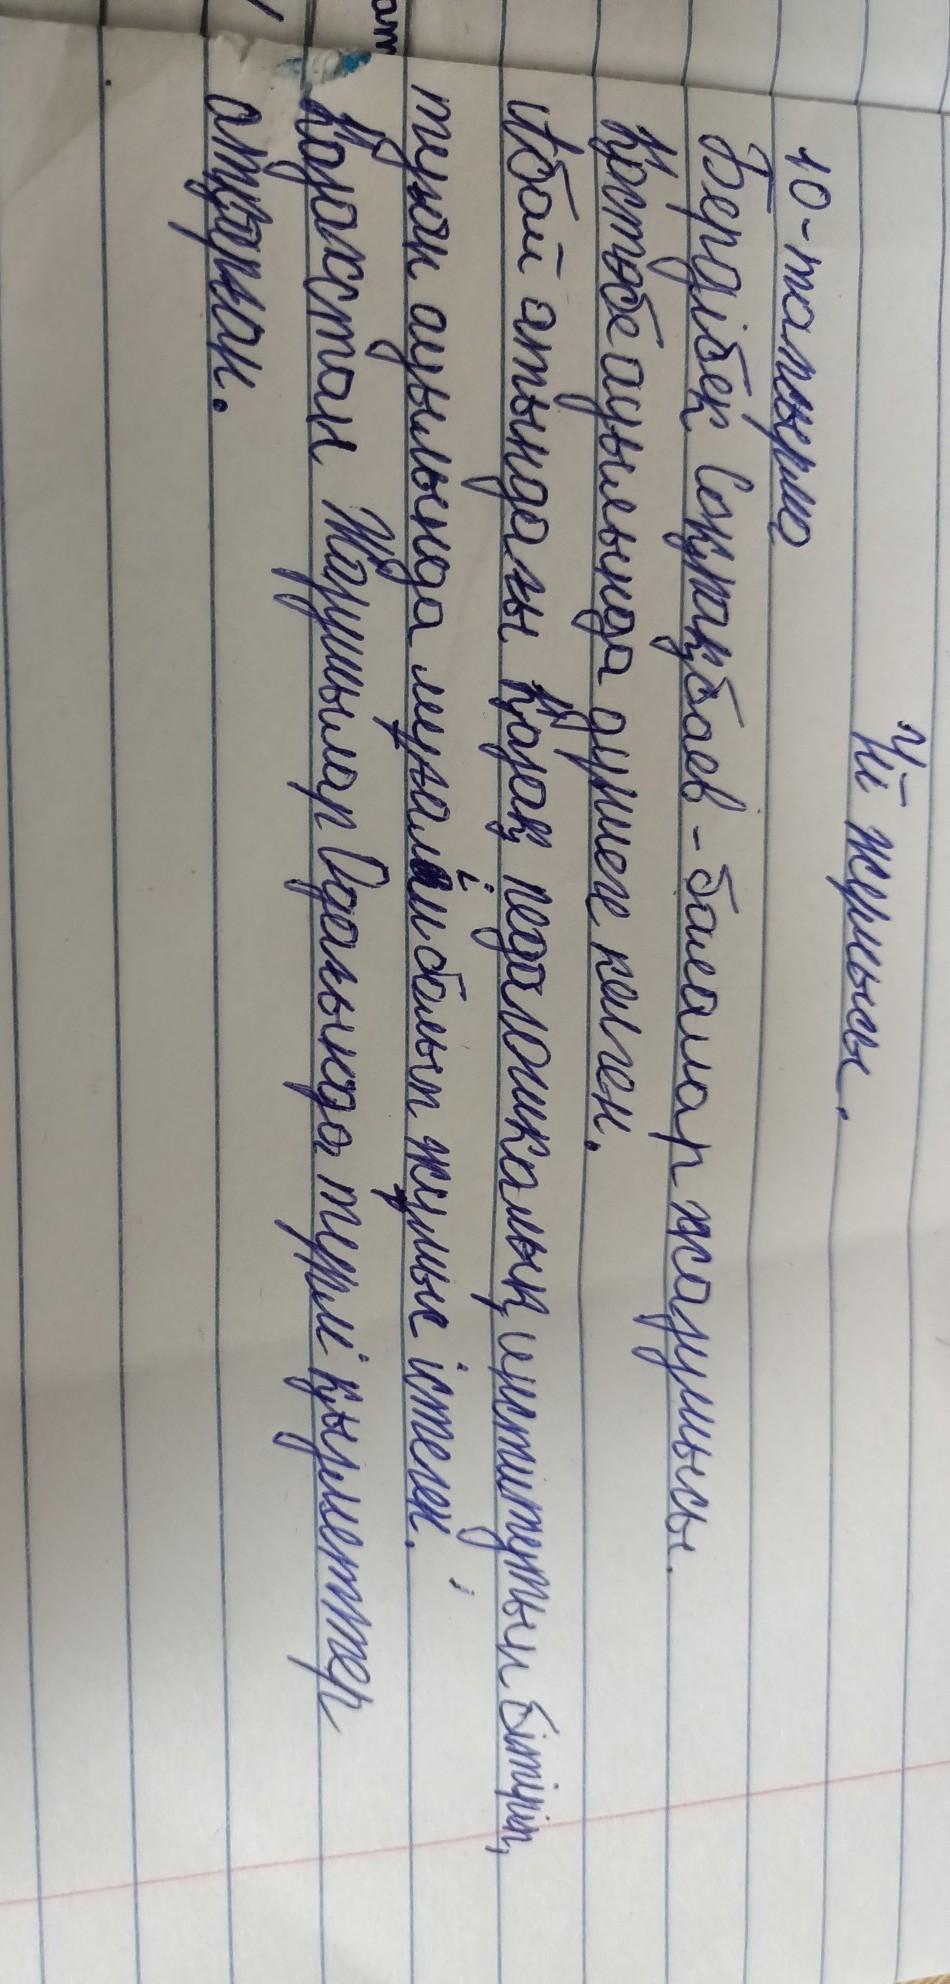 Үй жұмысы.
10-тапсырма
Бердібек Соқпақбаев - балалар жазушысы.
Қостөбе ауылында дүниеге келген.
Абай атындағы Қазақ педагогикалық институтын бітіріп,
туған ауылында мұғалім болып жұмыс істеген.
Қазақстан Жазушылар Одағында түрлі қызметтер
атқарған.